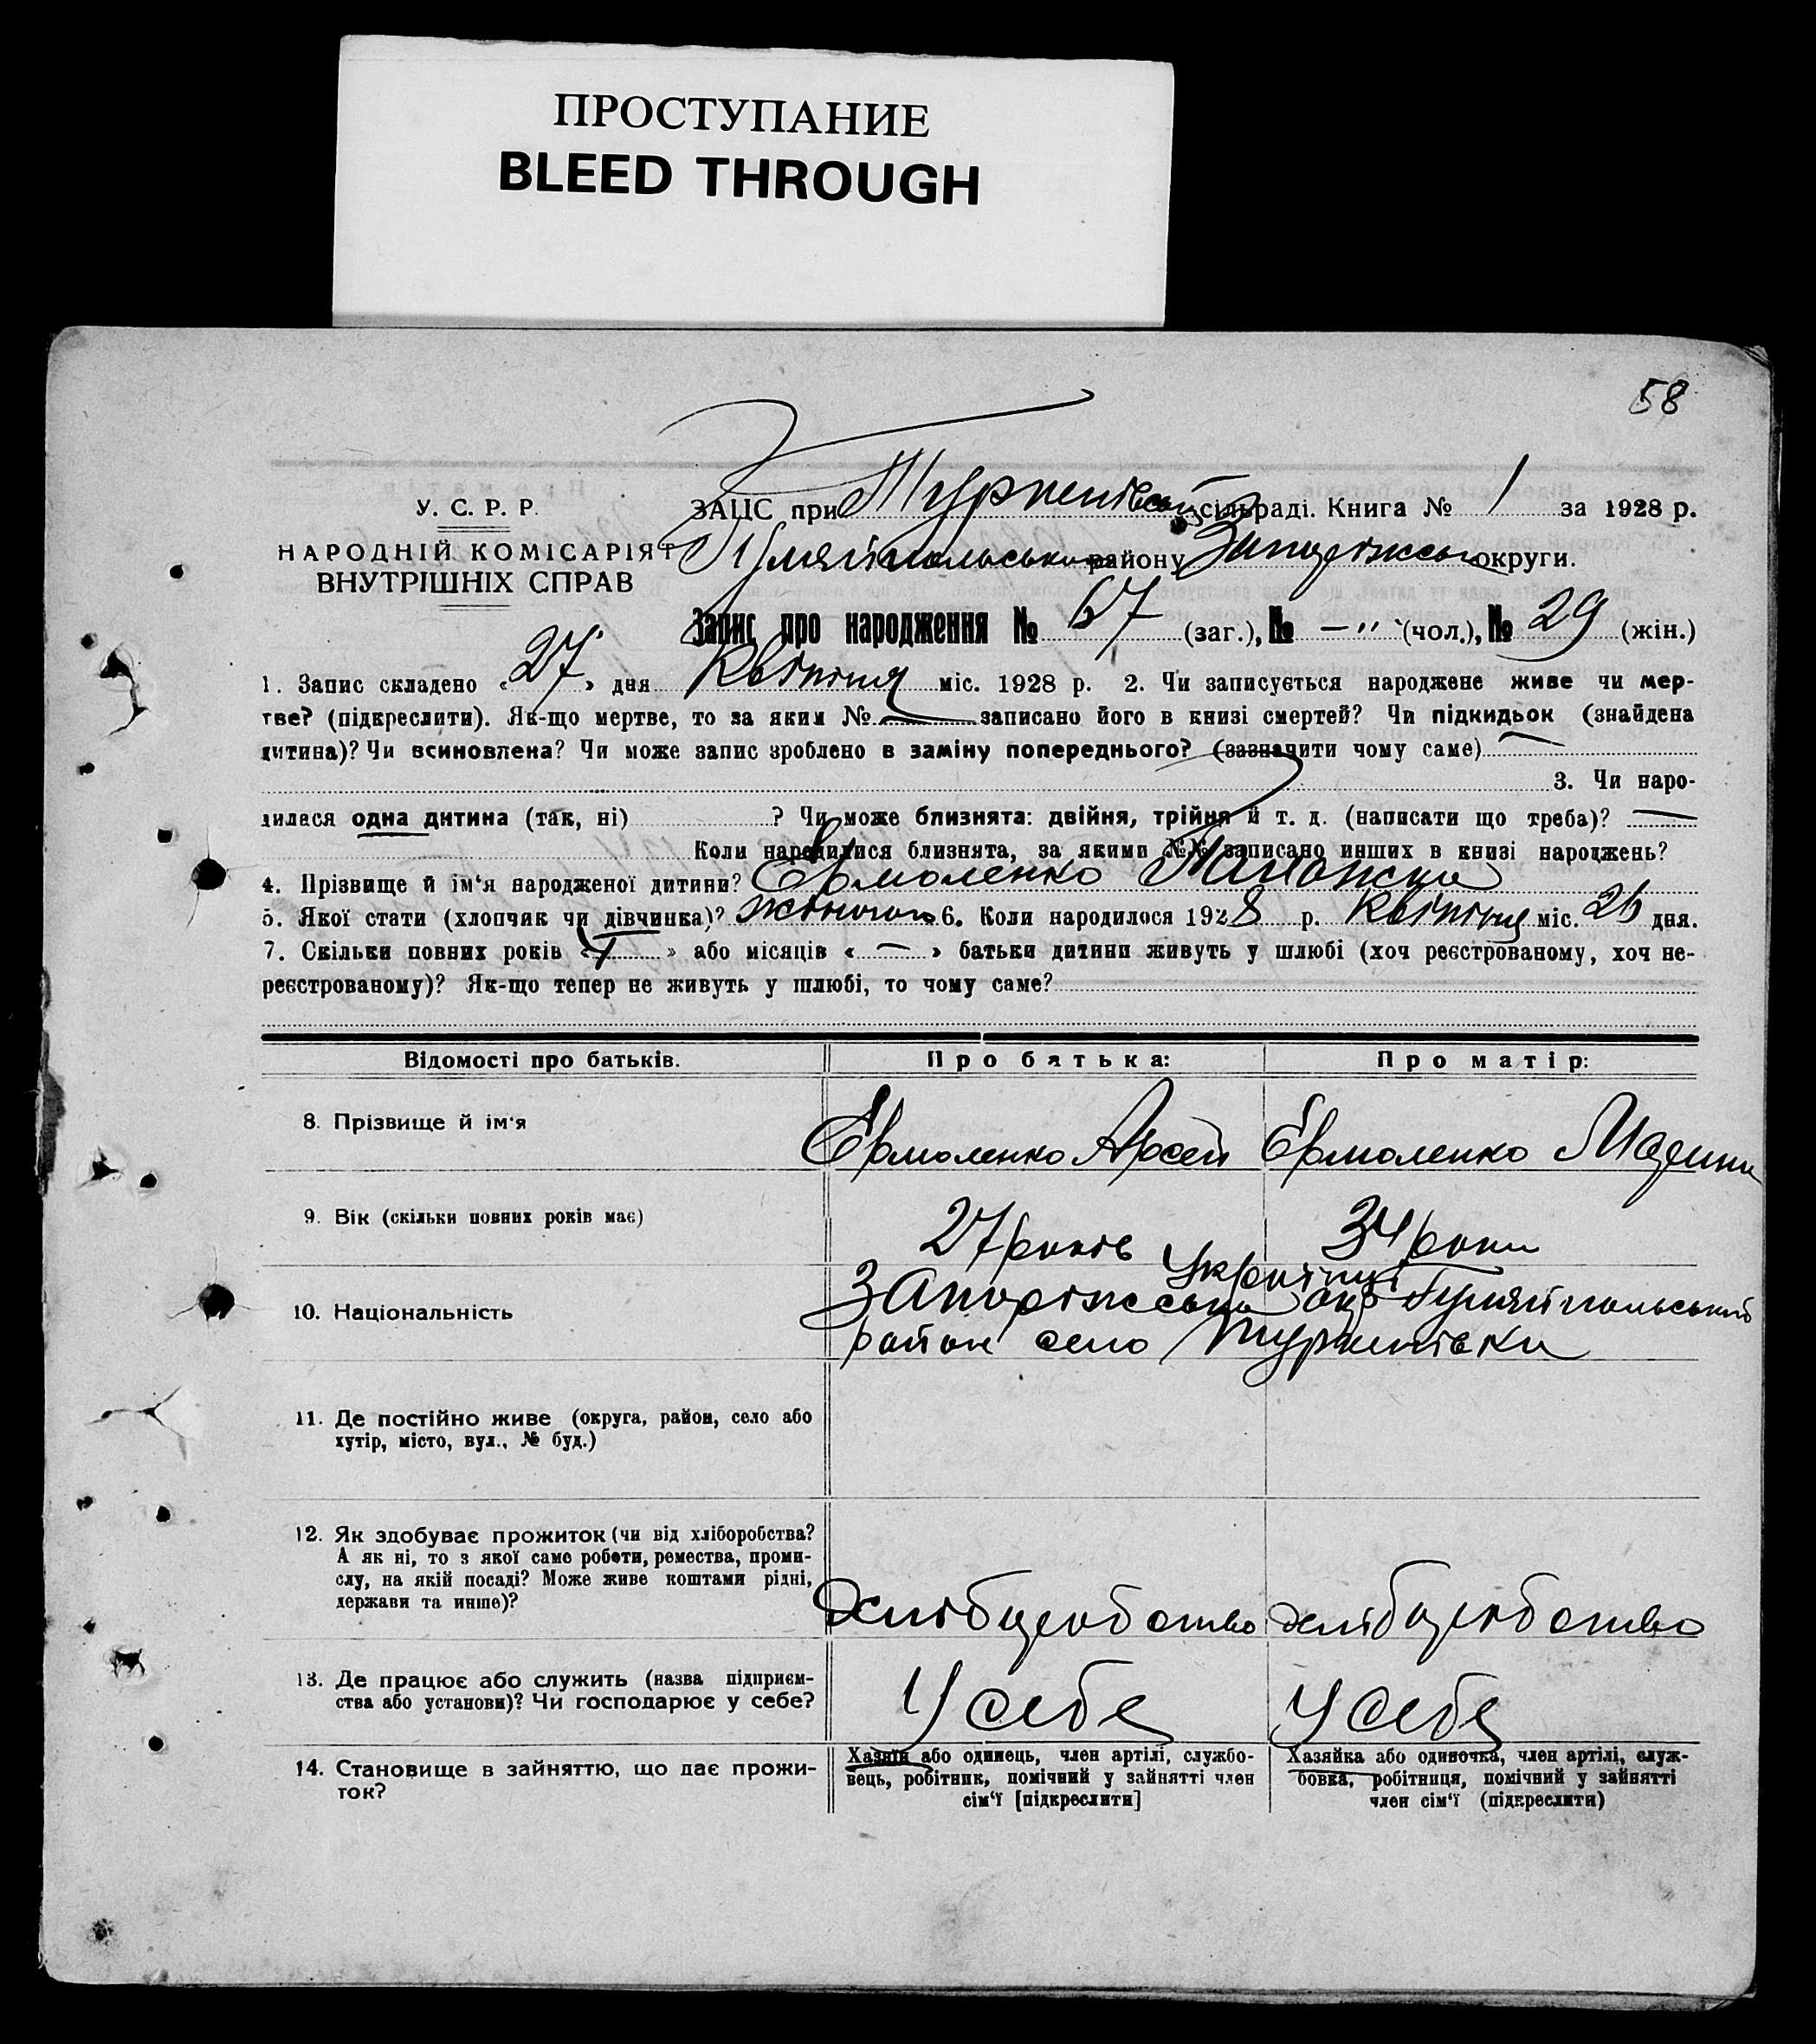 ПРОСТУПАНИЕ
BLEED THROUGH
58
У. С. Р. Р.
НАРОДНІЙ КОМІСАРІЯТ
ВНУТРІШНІХ СПРАВ
ЗАЦС при Туркенівській сільраді. Книга № 1 за 1928 р.
Гуляйпольського району Запоріжської округи.
Запис про народження № 67 (заг.), № —〃 (чол.), № 29 (жін.)
1. Запис складено «27» дня Квітня міс. 1928 р. 2. Чи записується народжене живе чи мер-
тве? (підкреслити). Як-що мертве, то за яким № — записано його в книзі смертей? Чи підкидьок (знайдена
дитина)? Чи всиновлена? Чи може запис зроблено в заміну попереднього? (зазначити чому саме) —
3. Чи наро-
дилася одна дитина (так, ні) ? Чи може близнята: двійня, трійня й т. д. (написати що треба)? —
Коли народилися близнята, за якими №№ записано инших в книзі народжень?
4. Прізвище й ім'я народженої дитини? Ермоленко
5. Якої стати (хлопчяк чи дівчинка)? 6. Коли народилося 1928 р. Квітня міс. 26 дня.
7. Скільки повних років « » або місяців « — » батьки дитини живуть у шлюбі (хоч реєстрованому, хоч не-
реєстрованому)? Як-що тепер не живуть у шлюбі, то чому саме?
Відомості про батьків. Про батька: Про матір:
8. Прізвище й ім'я Ермоленко Арсей Ермоленко
9. Вік (скільки повних років має) 27 років 34 роки
Українці
10. Національність Запоріжська окр Гуляйпольський
район село Туркенівка
11. Де постійно живе (округа, район, село або
хутір, місто, вул., № буд.)
12. Як здобуває прожиток (чи від хліборобства?
А як ні, то з якої саме роботи, ремества, проми-
слу, на якій посаді? Може живе коштами рідні,
держави та инше)? Хліборобство хліборобство
13. Де працює або служить (назва підприєм-
ства або установи)? Чи господарює у себе? У себе У себе
14. Становище в зайняттю, що дає прожи-
ток?
Хазяїн або одинець, член артілі, службо-
вець, робітник, помічний у зайнятті член
сім'ї [підкреслити]
Хазяйка або одиночка, член артілі, служ-
бовка, робітниця, помічний у зайнятті
член сім'ї (підкреслити)